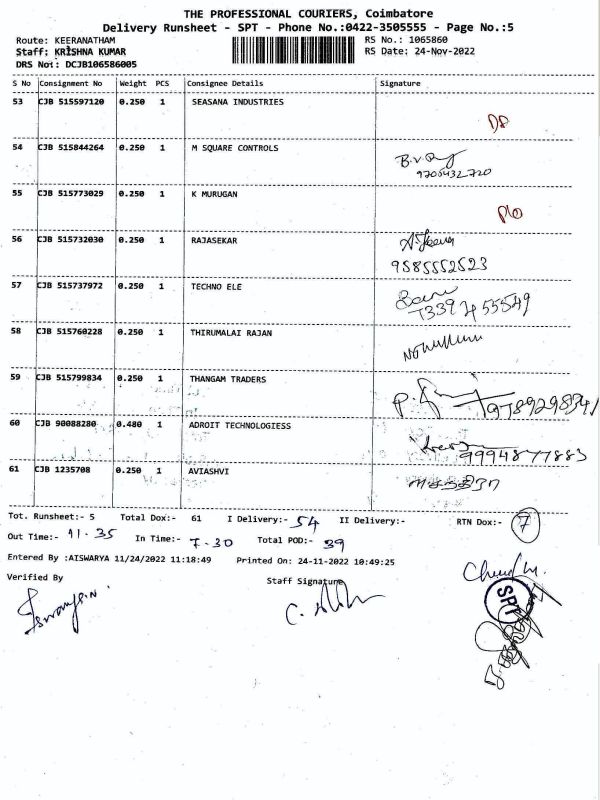 THE PROFESSIONAL COURIERS, Coimbatore
Delivery Runsheet - SPT - Phone No.:0422-3505555 - Page No.:5
Route: KEERANATHAM RS No.: 1065860
Staff: KRISHNA KUMAR RS Date: 24-Nov-2022
DRS No: DCJB106586005
S No Consignment No Weight PCS Consignee Details Signature
53 CJB 515597120 0.250 1 SEASANA INDUSTRIES
54 CJB 515844264 0.250 1 M SQUARE CONTROLS
9706432720
55 CJB 515773029 0.250 1 K MURUGAN
56 CJB 515732030 0.250 1 RAJASEKAR
9585552523
57 CJB 515737972 0.250 1 TECHNO ELE
58 CJB 515760228 0.250 1 THIRUMALAI RAJAN
59 CJB 515799834 0.250 1 THANGAM TRADERS
60 CJB 90088280 0.480 1 ADROIT TECHNOLOGIESS
9994877883
61 CJB 1235708 0.250 1 AVIASHVI
Tot. Runsheet:- 5 Total Dox:- 61 I Delivery:- 54 II Delivery:- RTN Dox:- 7
Out Time:- 11.35 In Time:- 7.30 Total POD:- 39
Entered By :AISWARYA 11/24/2022 11:18:49 Printed On: 24-11-2022 10:49:25
Verified By Staff Signature
SPT